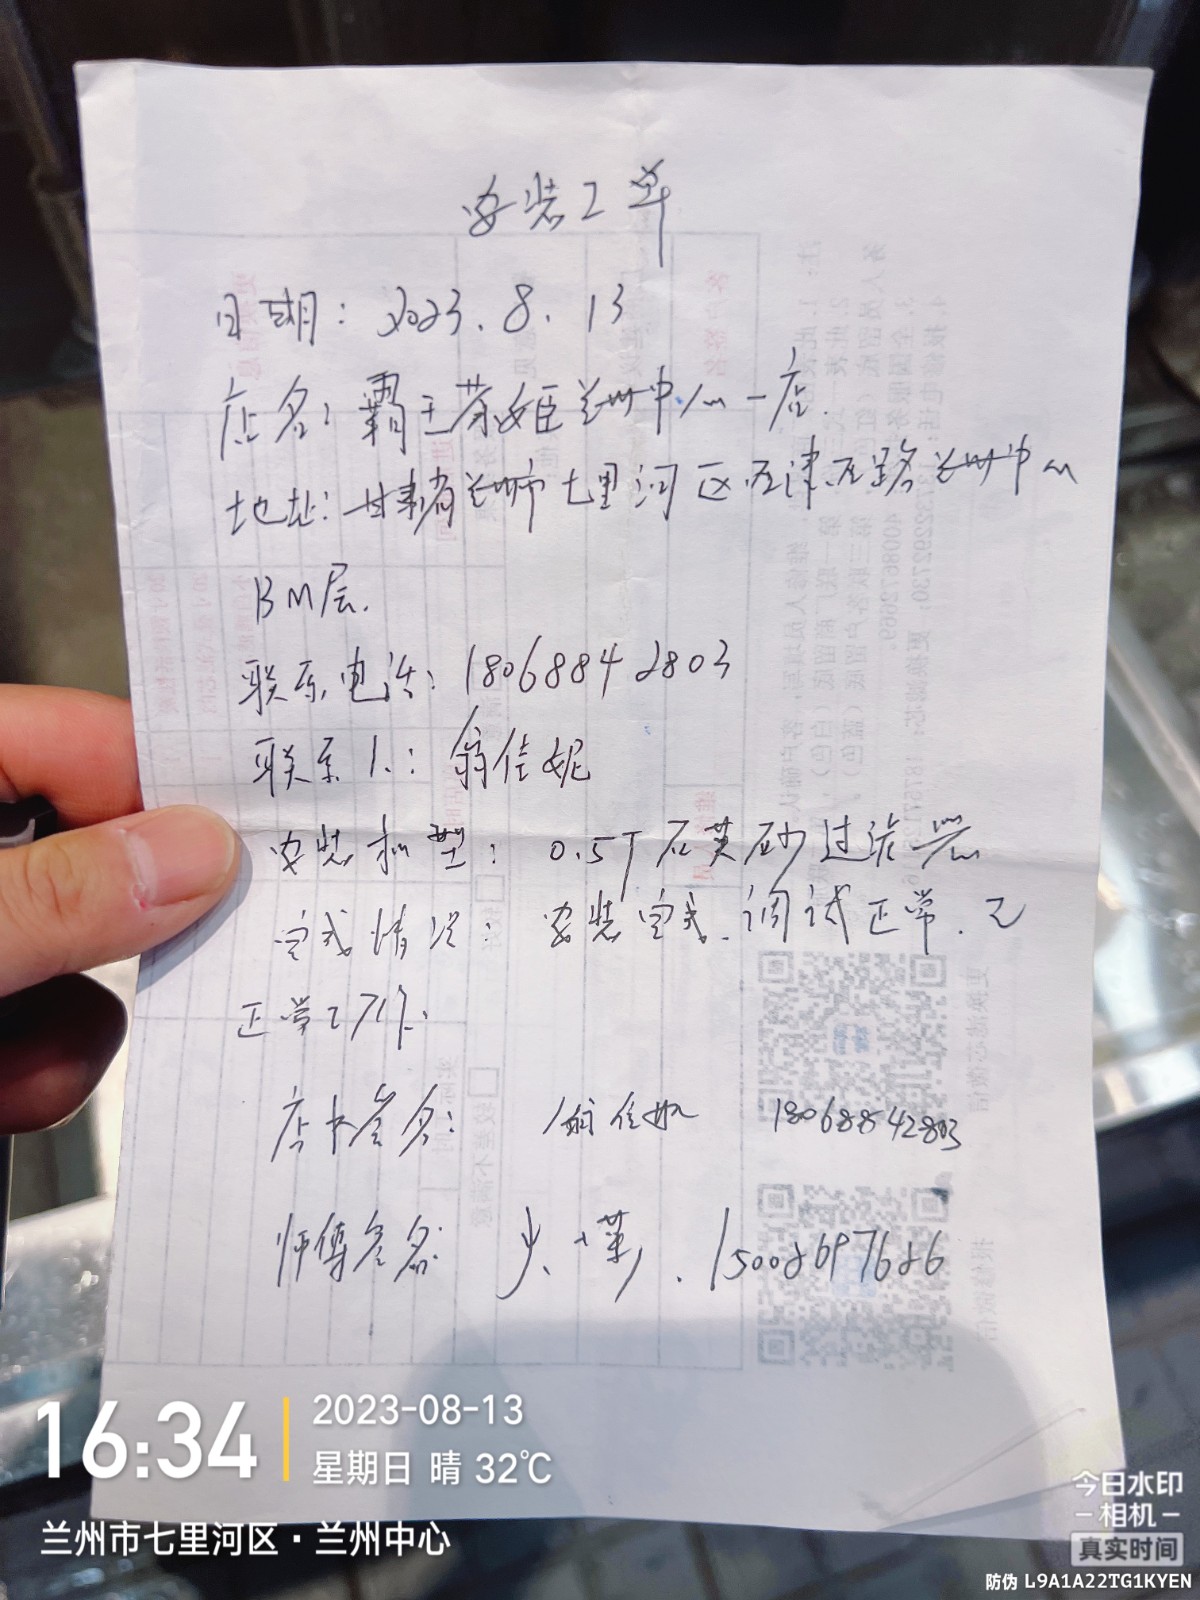 安装工单
日期：2023.8.13
店名：霸王茶姬兰州中心一店.
地址：甘肃省兰州市七里河区西津西路兰州中心
BM层.
联系电话：18068842803
联系人：翁佳妮
安装机型：0.5T石英砂过滤器
完成情况：安装完成.调试正常.已
正常工作.
店长签名：翁佳妮 18068842803
师傅签名
16:34
2023-08-13
星期日 晴 32℃
兰州市七里河区·兰州中心
今日水印
-相机-
真实时间
防伪 L9A1A22TG1KYEN